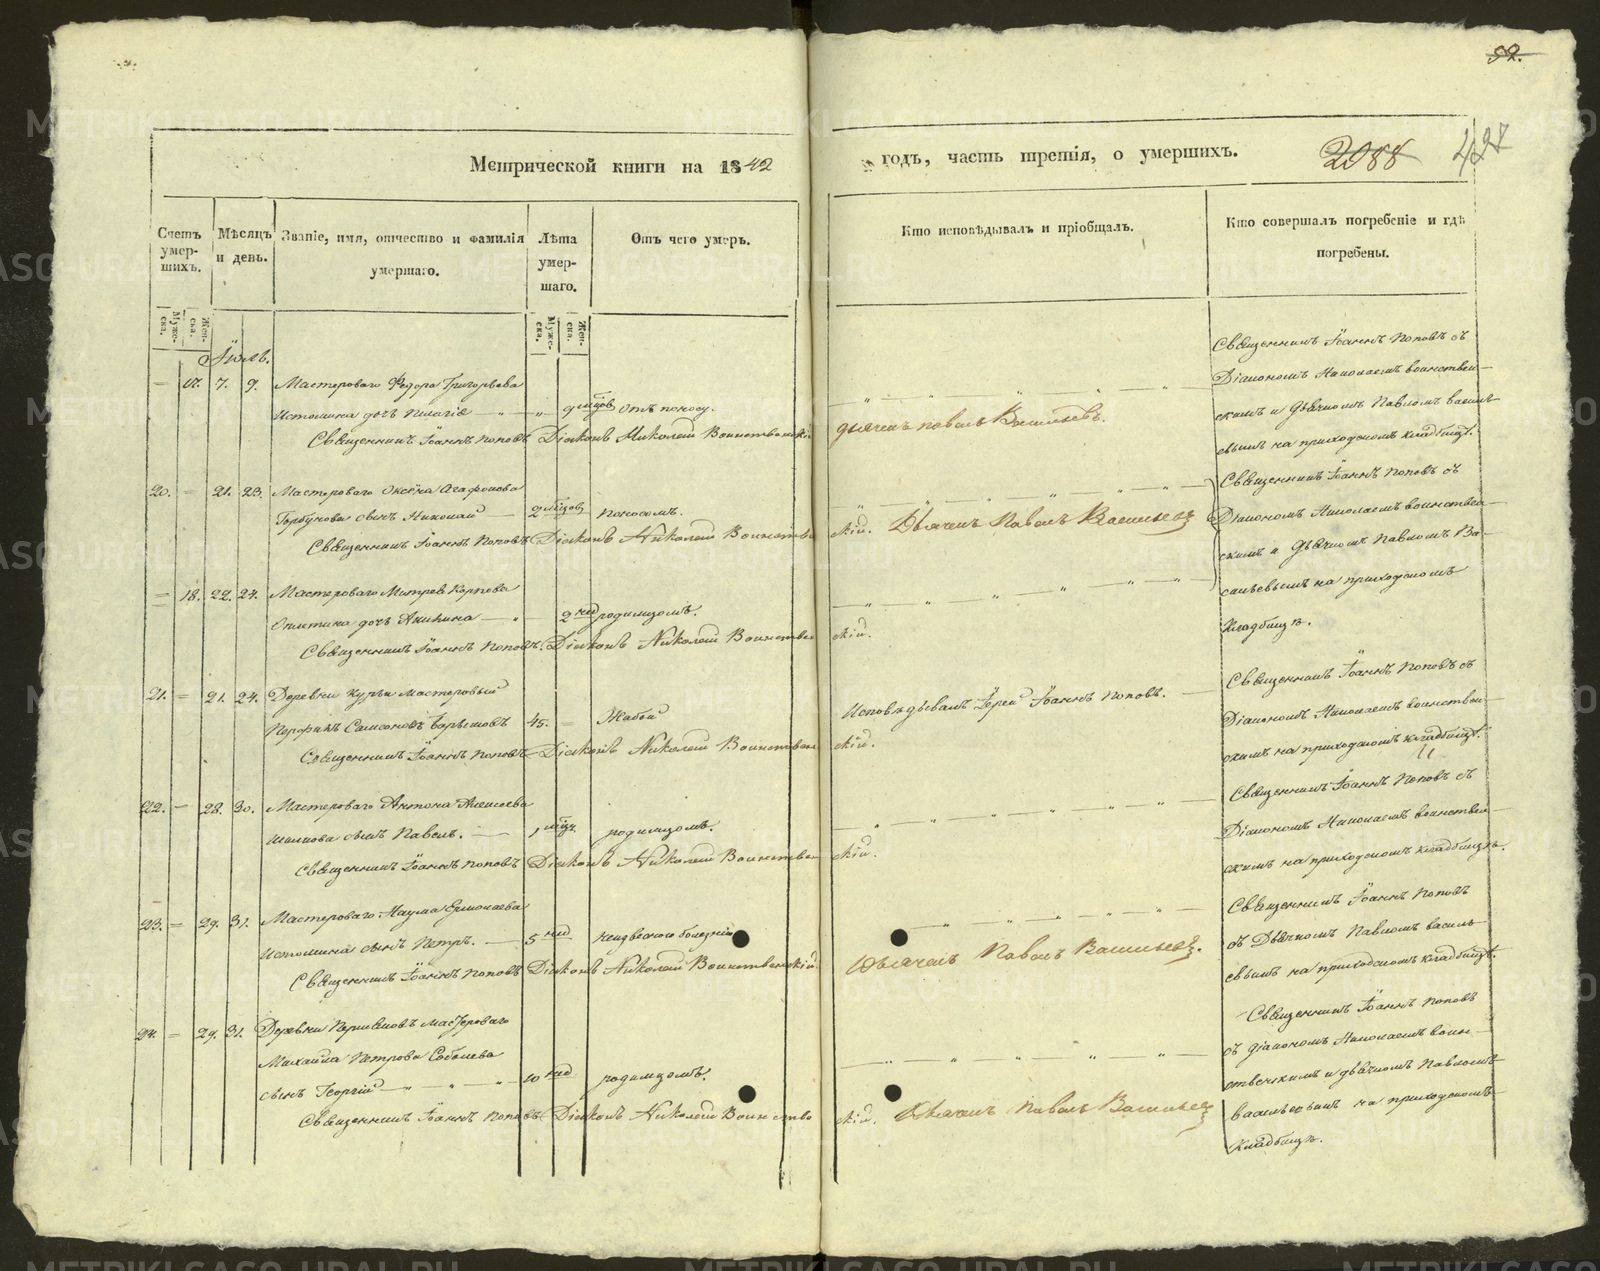 92.
Метрической книги на 1842
годъ, часть третія, о умершихъ.
2088
427
Счетъ умер-шихъ.
Мѣсяцъ и день.
Званіе, имя, отчество и фамилія умершаго.
Лѣта умер-шаго.
Отъ чего умеръ.
Кто исповѣдывалъ и пріобщалъ.
Кто совершалъ погребеніе и гдѣ погребены.
Муже-ска.
Жен-ска.
Муже-ска.
Жен-ска.
Іюль.
17. 7. 9. Мастероваго Ѳедора Григорьева
Истомина дочь Пелагіе 9 мцов отъ поносу.
Священникъ Іоаннъ Поповъ Діаконъ Николай Воинственскій
дьячекъ Павелъ Васильевъ.
Священникъ Іоаннъ Поповъ съ
Діакономъ Николаемъ Воинствен-
скимъ и Дьячкомъ Павломъ Василь-
евымъ на приходскомъ кладбищѣ.
20. 21. 23. Мастероваго Агафонова
Горбунова сынъ Николай 2 мцов поносомъ.
Священникъ Іоаннъ Поповъ Діаконъ Николай Воинствен
скій. Дьячекъ Павелъ Васильев
Священникъ Іоаннъ Поповъ съ
Діакономъ Николаемъ Воинствен-
скимъ и Дьячкомъ Павломъ Ва-
сильевымъ на приходскомъ
кладбищѣ.
18. 22. 24. Мастероваго Митрея Карпова
дочь Акилина 2 нед родимцомъ.
Священникъ Іоаннъ Поповъ. Діаконъ Николай Воинствен
скій.
21. 21. 24. Деревни Курьи мастеровый
Порфиръ Самсоновъ 45. Жабой
Священникъ Іоаннъ Поповъ Діаконъ Николай Воинствен
Исповѣдывалъ Іерей Іоаннъ Поповъ.
скій.
Священникъ Іоаннъ Поповъ съ
Діакономъ Николаемъ Воинствен-
скимъ на приходскомъ кладбищѣ.
22. 28. 30. Мастероваго Антона Алексеева
сынъ Павелъ. 1 мцъ. родимцомъ.
Священникъ Іоаннъ Поповъ Діаконъ Николай Воинствен
скій.
Священникъ Іоаннъ Поповъ съ
Діакономъ Николаемъ Воинствен-
скимъ на приходскомъ кладбищѣ.
23. 29. 31. Мастероваго Наума Ермолаева
Истомина сынъ Петръ. 5 нед неизвесною болезнію
Священникъ Іоаннъ Поповъ Діаконъ Николай Воинственскій
Дьячекъ Павелъ Васильев.
Священникъ Іоаннъ Поповъ
съ Дьячкомъ Павломъ Василь-
евымъ на приходскомъ кладбищѣ.
24. 29. 31. Деревни мастероваго
Михаила Петрова Соболева
сынъ Георгій 10 нед родимцомъ.
Священникъ Іоаннъ Поповъ Діаконъ Николай Воинство
скій. Дьячекъ Павелъ Васильев
Священникъ Іоаннъ Поповъ
съ діакономъ Николаемъ Воин-
ственскимъ и дьячкомъ Павломъ
Васильевымъ на приходскомъ
кладбищѣ.